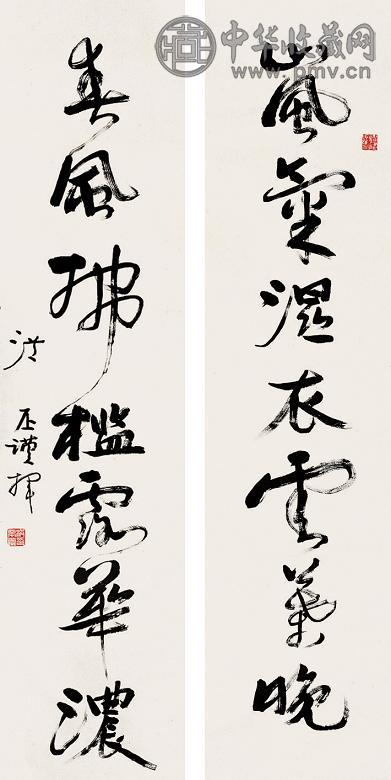 中华收藏网
www.pmv.cn
嵐氣濕衣雲葉晚
春風拂檻露華濃
洪丕謨揮